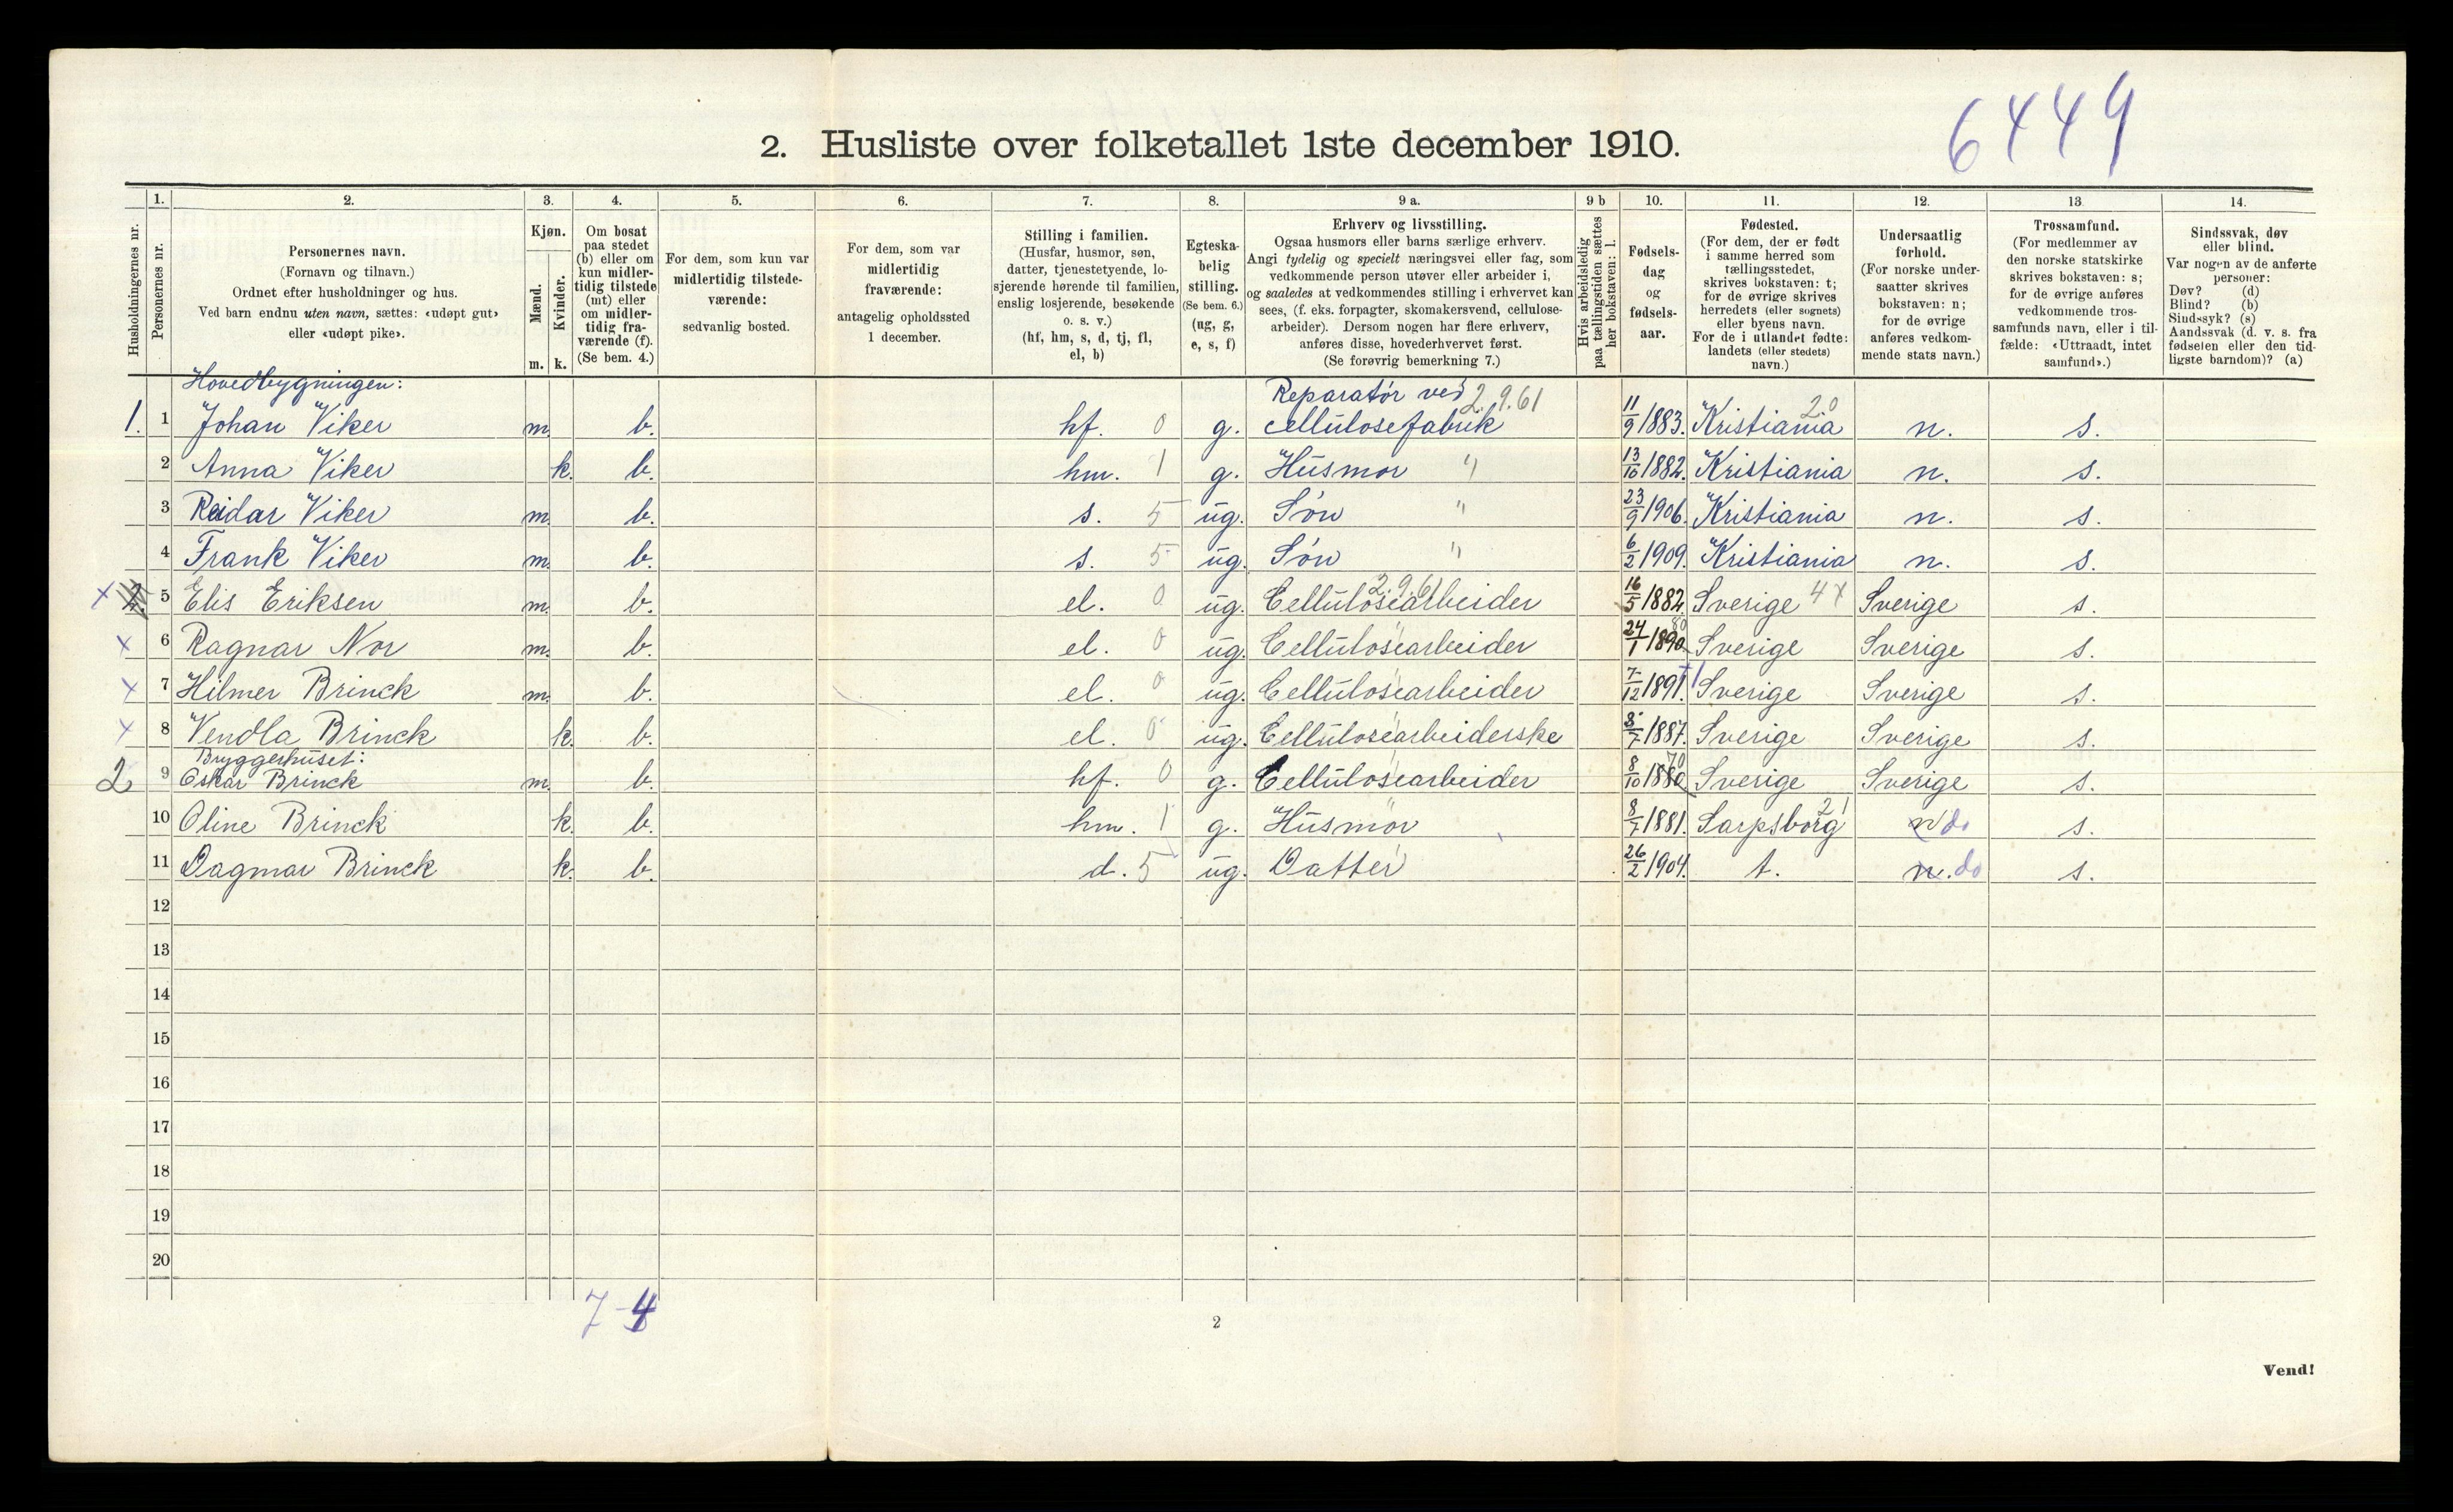 6449
2. Husliste over folketallet 1ste december 1910.
Husholdningernes nr.
1. Personernes nr.
2. Personernes navn.
(Fornavn og tilnavn.)
Ordnet efter husholdninger og hus.
Ved barn endnu uten navn, sættes: «udøpt gut»
eller «udøpt pike».
3. Kjøn.
Mænd. m.
Kvinder. k.
4. Om bosat
paa stedet
(b) eller om
kun midler-
tidig tilstede
(mt) eller
om midler-
tidig fra-
værende (f).
(Se bem. 4.)
5. For dem, som kun var
midlertidig tilstede-
værende:
sedvanlig bosted.
6. For dem, som var
midlertidig
fraværende:
antagelig opholdssted
1 december.
7. Stilling i familien.
(Husfar, husmor, søn,
datter, tjenestetyende, lo-
sjerende hørende til familien,
enslig losjerende, besøkende
o. s. v.)
(hf, hm, s, d, tj, fl,
el, b)
8. Egteska-
belig
stilling.
(Se bem. 6.)
(ug, g,
e, s, f)
9 a. Erhverv og livsstilling.
Ogsaa husmors eller barns særlige erhverv.
Angi tydelig og specielt næringsvei eller fag, som
vedkommende person utøver eller arbeider i,
og saaledes at vedkommendes stilling i erhvervet kan
sees, (f. eks. forpagter, skomakersvend, cellulose-
arbeider). Dersom nogen har flere erhverv,
anføres disse, hovederhvervet først.
(Se forøvrig bemerkning 7.)
9 b Hvis arbeidsledig
paa tællingstiden sættes
her bokstaven: l.
10. Fødsels-
dag
og
fødsels-
aar.
11. Fødested.
(For dem, der er født
i samme herred som
tællingsstedet,
skrives bokstaven: t;
for de øvrige skrives
herredets (eller sognets)
eller byens navn.
For de i utlandet fødte:
landets (eller stedets)
navn.)
12. Undersaatlig
forhold.
(For norske under-
saatter skrives
bokstaven: n;
for de øvrige
anføres vedkom-
mende stats navn.)
13. Trossamfund.
(For medlemmer av
den norske statskirke
skrives bokstaven: s;
for de øvrige anføres
vedkommende tros-
samfunds navn, eller i til-
fælde: «Uttraadt, intet
samfund».)
14. Sindssvak, døv
eller blind.
Var nogen av de anførte
personer:
Døv? (d)
Blind? (b)
Sindssyk? (s)
Aandssvak (d. v. s. fra
fødselen eller den tid-
ligste barndom)? (a)
Hovedbygningen: Reparatør ved 2.9.61
1. 1 Johan Viker m. b. hf. 0 g. cellulosefabrik 11/9 1883. Kristiania 20 n. s.
2 Anna Viker k. b. hm. 1 g. Husmor " 13/10 1882. Kristiania n. s.
3 Reidar Viker m. b. s. 5 ug. Søn " 23/9 1906. Kristiania n. s.
4 Frank Viker m. b. s. 5 ug. Søn " 6/2 1909. Kristiania n. s.
x 2. 5 Elis Eriksen m. b. el. 0 ug. Cellulosearbeider 2.9.61 16/5 1882. Sverige 4x Sverige s.
x 6 Ragnar Nor m. b. el. 0 ug. Cellulosearbeider 24/1 1890 80 Sverige Sverige s.
x 7 Hilmer Brinck m. b. el. 0 ug. Cellulosearbeider 7/12 1891. Sverige Sverige s.
x 8 Vendla Brinck k. b. el. 0 ug. Cellulosearbeiderske 8/7 1887. Sverige Sverige s.
Bryggerhuset:
2 9 Oskar Brinck m. b. hf. 0 g. Cellulosearbeider 8/10 1880 70 Sverige Sverige s.
10 Oline Brinck k. b. hm. 1 g. Husmor 8/7 1881. Sarpsborg 21 n do s.
11 Dagmar Brinck k. b. d. 5 ug. Datter 26/2 1904. t. n. do s.
12
13
14
15
16
17
18
19
20
7-4
2
Vend!